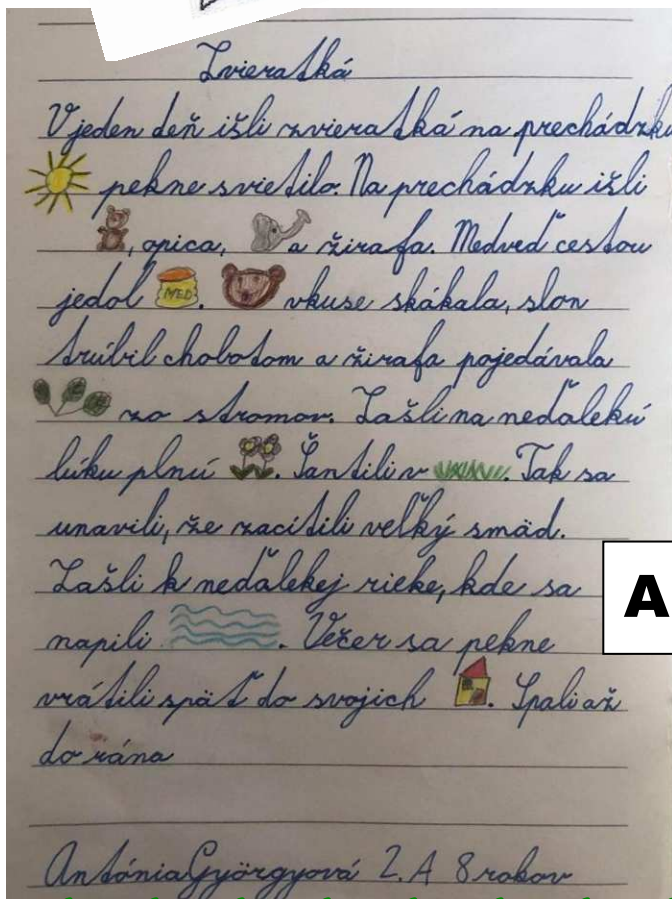 Zvieratká
V jeden deň išli zvieratká na prechádzku
pekne svietilo. Na prechádzku išli
, opica, a žirafa. Medveď cestou
jedol MED. vkuse skákala, slon
trúbil chobotom a žirafa pojedávala
zo stromov. Zašli na neďalekú
lúku plnú . Šantili v . Tak sa
unavili, že zacítili veľký smäd.
Zašli k neďalekej rieke, kde sa
napili . Večer sa pekne
vrátili späť do svojich . Spali až
do rána
A
Antónia Györgyová 2. A 8 rokov